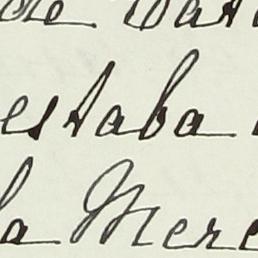 de
estaba
la Mere